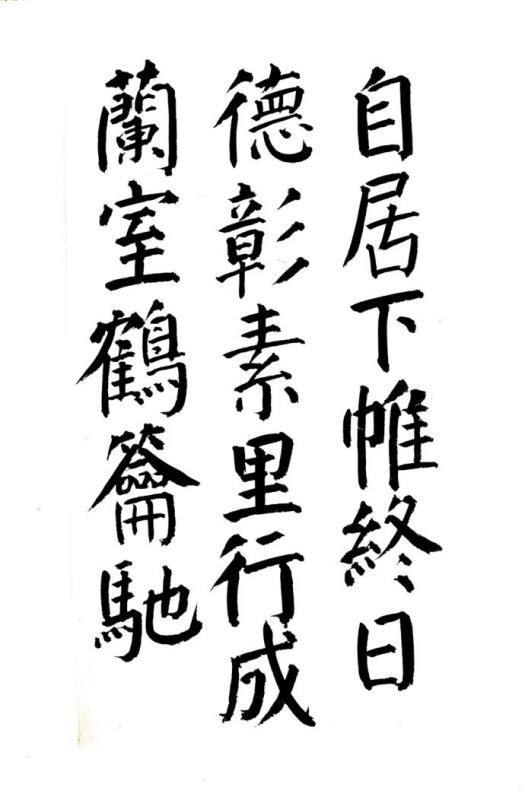 自居下帷終日
德彰素里行成
蘭室鶴籥馳